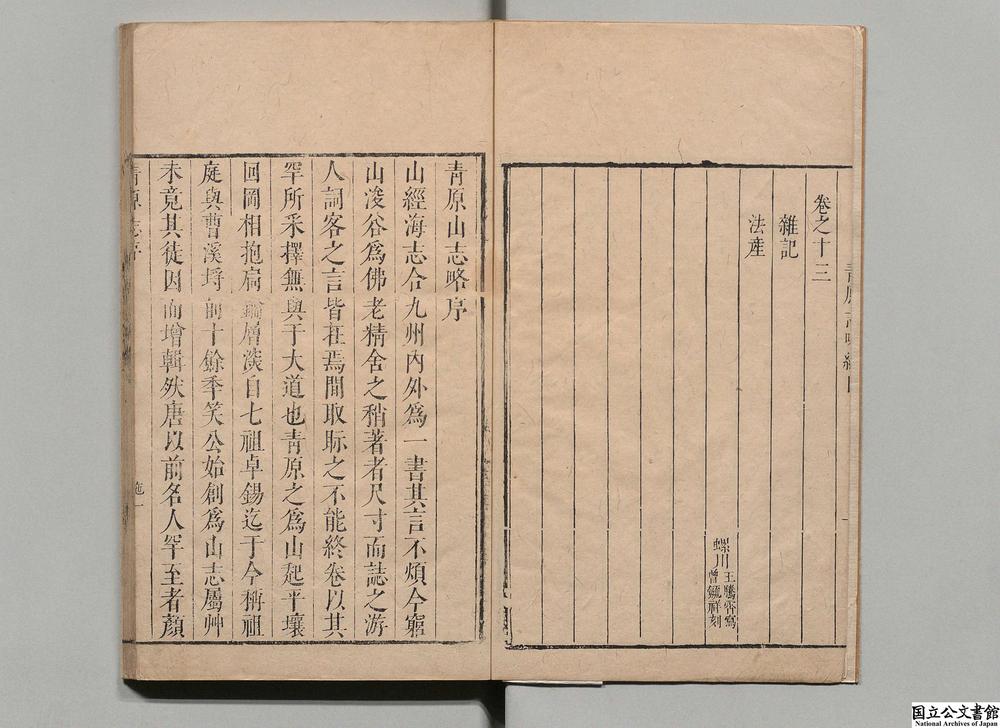 卷之十三
雜記
法產
螺川王騰霄寫
曾毓祥刻
青原山志略序
山經海志合九州內外爲一書其言不煩今窮
山浚谷爲佛老精舍之稍著者尺寸而誌之游
人詞客之言皆在焉閒取眎之不能終卷以其
罕所采擇無與于大道也青原之爲山起平壤
回岡相抱扃鑰層淡自七祖卓錫迄于今稱祖
庭與曹溪埒前十餘秊笑公始創爲山志屬艸
未竟其徒因而增輯然唐以前名人罕至者顏
青原志序
施一
国立公文書館
National Archives of Japan